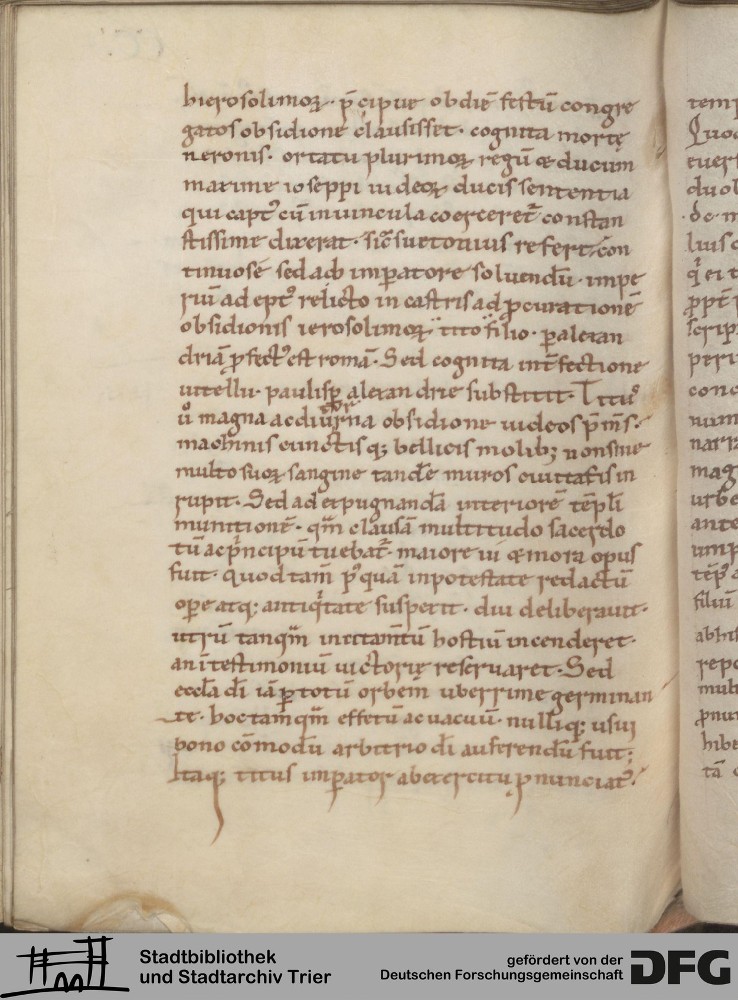 hierosolimoꝝ· p̄cipue obdiē festū congre
gatos obsidione clausisset· cognita mortę
neronis· ortatu plurimoꝝ regū & ducum
maxime ioseppi iudeoꝝ ducis sententia
qui capt᷒ cū inuincula coerceret̄ constan
stissime dixerat· sic̄ suetonius refert· con
tinuo sé sed ab imꝑatore soluendū· impe
riū adept᷒ relicto in castris ad ꝓcurationē
obsidionis ierosolimoꝝ tito filio· ꝑ alexan
driā ꝓfect᷒ est romā· Sed cognita int̄fectione
uitellii· paulisꝑ alexandrię substitit· Titu᷒
u̇ magna ac diuturna obsidione iudeos p̄m̄s·
machinis cunctisq; bellicis molib; non sine
multo suoꝝ sangine tandē muros ciuitatis in
rupit· Sed ad expugnandā interiorē tēpli
munitionē· qm̄ clausā multitudo sacerdo
tū ac p̄ncipū tuebat̄· maiore ui & mora opus
fuit· Quod tam̄ p᷒quā in potestate redactū
opere atq; antiq̇tate suspexit· diu deliberauit·
utrū tanqm̄ incitam̄tū hostiū incenderet·
an ī testimoniū uictorię reseruaret· Sed
eccła dī iā ꝑ totū orbem̄ uberrime germinan
te· hoc tamqm̄ effetū ac uacuū· nulliq; usui
bono cōmodū arbitrio dī auferendū fuit;
Itaq; titus imꝑator ab exercitu ꝓnunciat᷒·
temp
Quo
euers
duol
·dc·m
lius
q̇ ei t
ꝓpt̄
scrip
peri
conc
num
narr
mag
urbe
ante
imp
tēp᷒
filiū
abhis
repo
mul
ꝓnu
hibe
tā c
Stadtbibliothek
und Stadtarchiv Trier
gefördert von der
Deutschen Forschungsgemeinschaft
DFG